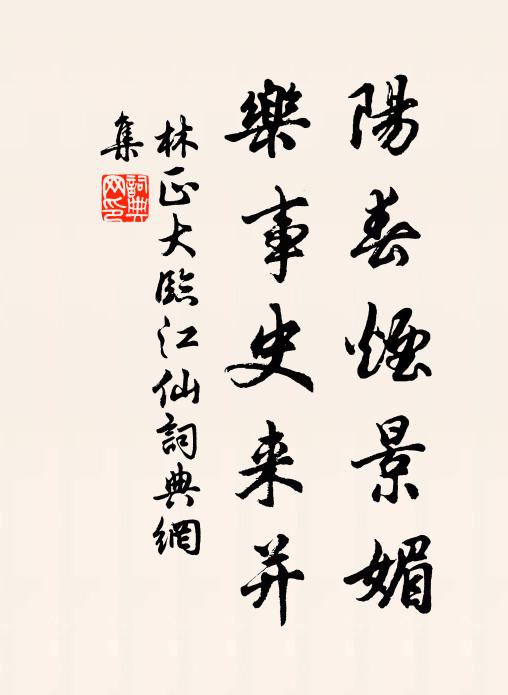 陽春煙景媚
樂事史来并
林正大臨江仙詞典網
集
詞典
网印